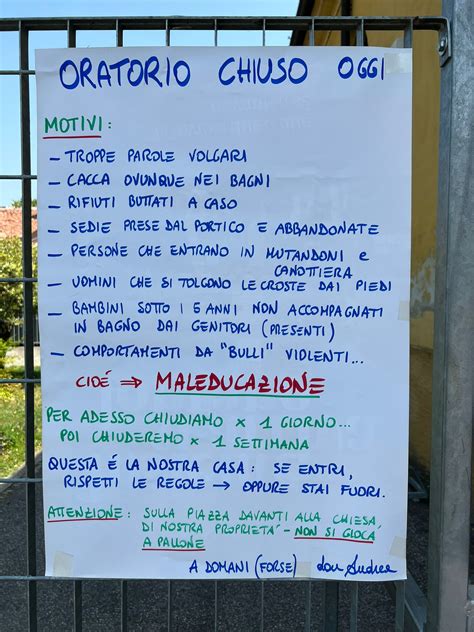 ORATORIO CHIUSO OGGI
MOTIVI:
– TROPPE PAROLE VOLGARI
– CACCA OVUNQUE NEI BAGNI
– RIFIUTI BUTTATI A CASO
– SEDIE PRESE DAL PORTICO E ABBANDONATE
– PERSONE CHE ENTRANO IN MUTANDONI E
CANOTTIERA
– UOMINI CHE SI TOLGONO LE CROSTE DAI PIEDI
– BAMBINI SOTTO I 5 ANNI NON ACCOMPAGNATI
IN BAGNO DAI GENITORI (PRESENTI)
– COMPORTAMENTI DA "BULLI" VIOLENTI...
CIOÉ ⇒ MALEDUCAZIONE
PER ADESSO CHIUDIAMO × 1 GIORNO...
POI CHIUDEREMO × 1 SETTIMANA
QUESTA É LA NOSTRA CASA: SE ENTRI,
RISPETTI LE REGOLE → OPPURE STAI FUORI.
ATTENZIONE: SULLA PIAZZA DAVANTI ALLA CHIESA
DI NOSTRA PROPRIETA' – NON SI GIOCA
A PALLONE
A DOMANI (FORSE) don Andrea